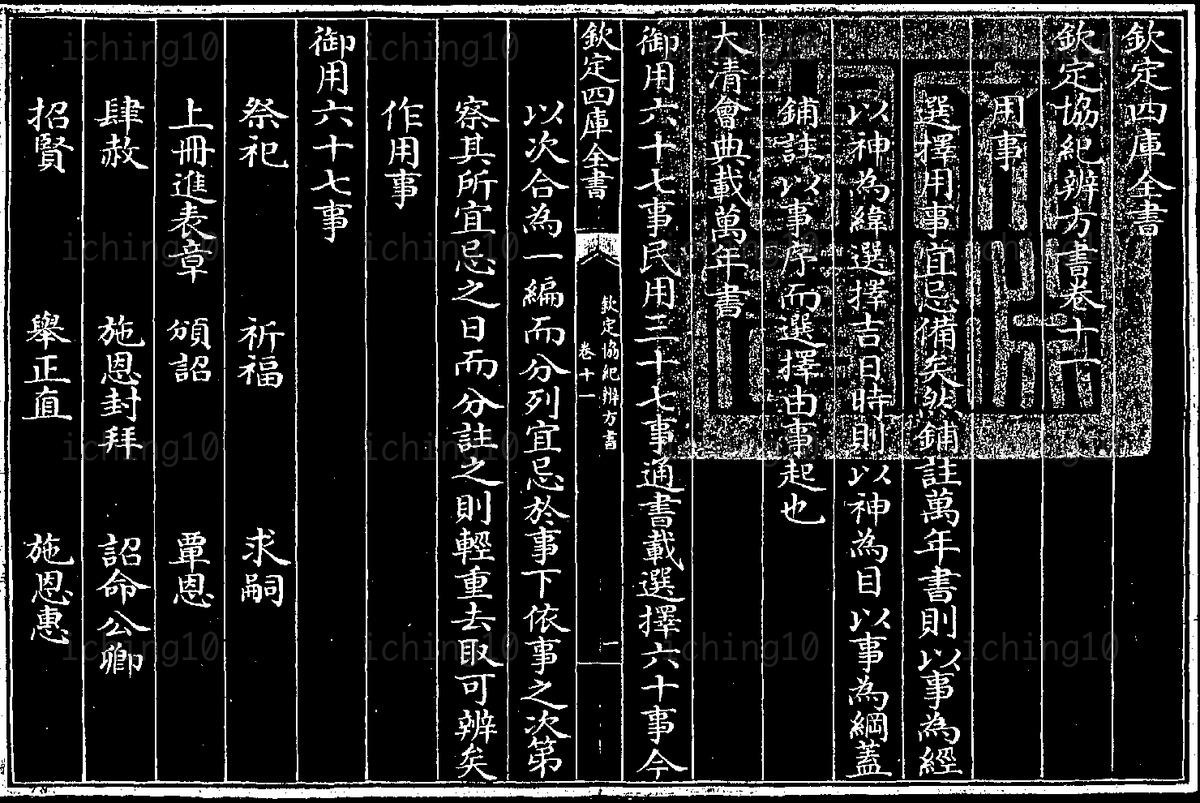 欽定四庫全書
欽定協紀辨方書卷十一
用事
選擇用事宜忌備矣然鋪註萬年書則以事為經
以神為緯選擇吉日時則以神為目以事為綱蓋
鋪註以事序而選擇由事起也
大清會典載萬年書
御用六十七事民用三十七事通書載選擇六十事今
欽定四庫全書
欽定協紀辨方書
卷十一
一
以次合為一編而分列宜忌於事下依事之次第
察其所宜忌之日而分註之則輕重去取可辨矣
作用事
御用六十七事
祭祀 祈福 求嗣
上冊進表章 頒詔 覃恩
肆赦 施恩封拜 詔命公卿
招賢 舉正直 施恩惠
iching10 iching10 iching10 iching10
iching10 iching10 iching10 iching10
iching10 iching10 iching10 iching10
iching10 iching10 iching10 iching10